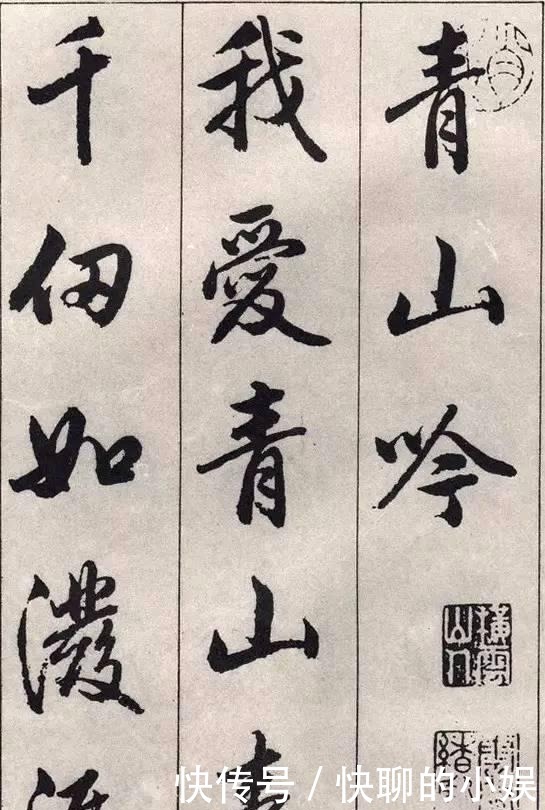 青山吟
橫雲山人
我愛青山
千仞如潑
快传号 / 快聊的小娱